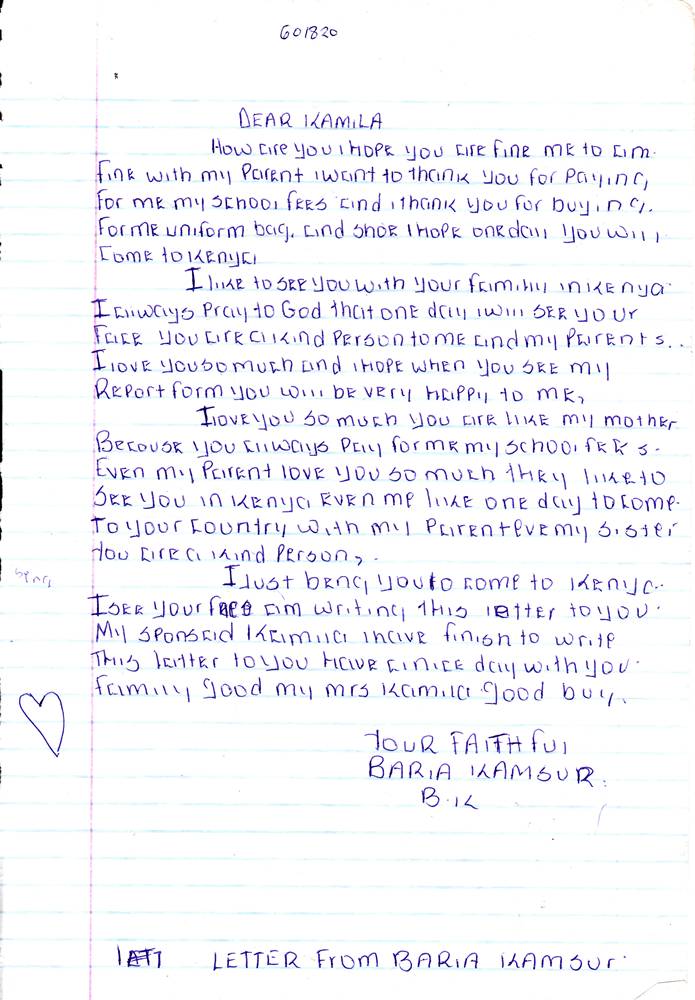 601820
DEAR KAMILA
HOW are you I HOPE you are fine ME to am.
fine with my Parent i want to thank you for Paying
for me my school fees and i thank you for buying.
for me uniform bag. and shoe I HOPE one day you will
come to Kenya
I like to see you with your family in Kenya
I always Pray to God that one day i will see your
face you are a kind Person to me and my Parents..
I love you so much and i HOPE when you see my
Report form you will be very Happy to me,
I love you so much you are like my mother
Because you always Pay for me my school fees.
Even my Parent love you so much they like to
see you in Kenya Even me like one day to come.
to your country with my Parent eve my sister
You are a kind Person,.
I Just beng you to come to Kenya..
I see your face am writing this letter to you.
My sponsaid Kamila i have finish to write
This letter to you Have a nice day with you.
family good my mrs Kamila good buy.
YOUR FAITHful
BARIA KAMSUR.
B.K
LETTER FROM BARIA KAMSUR.